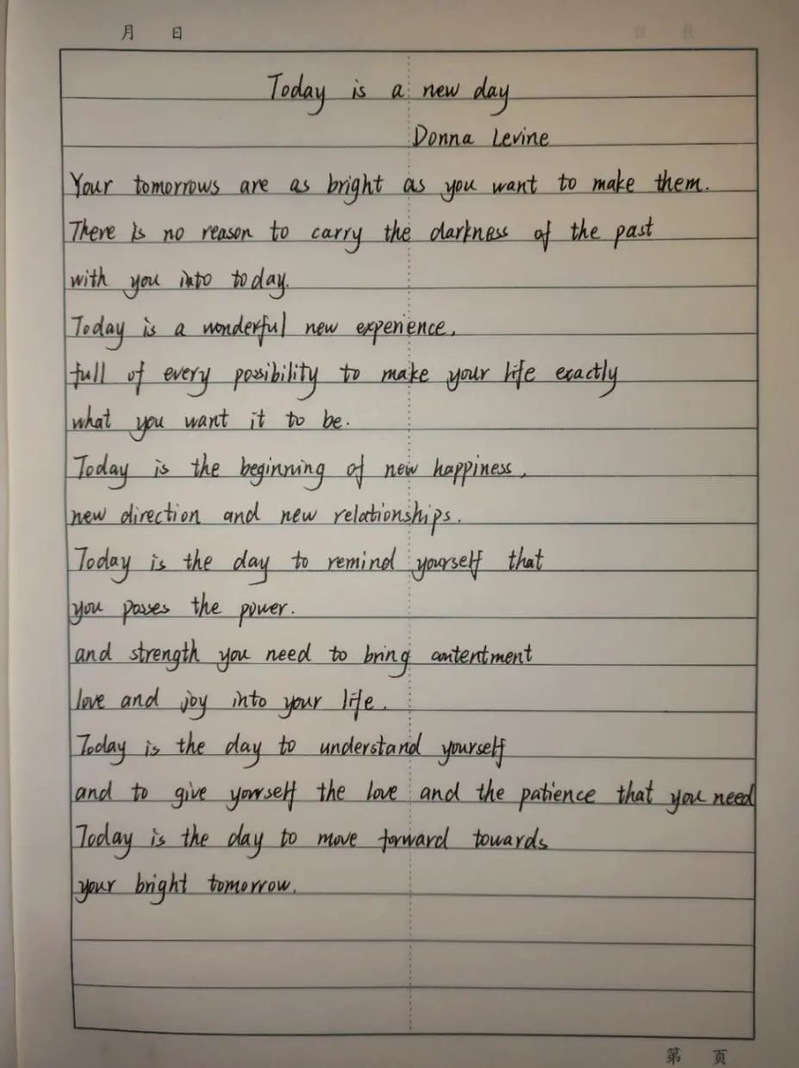 月 日
Today is a new day
Donna Levine
Your tomorrows are as bright as you want to make them.
There is no reason to carry the darkness of the past
with you into today.
Today is a wonderful new experience,
full of every possibility to make your life exactly
what you want it to be.
Today is the beginning of new happiness,
new direction and new relationships.
Today is the day to remind yourself that
you posses the power.
and strength you need to bring contentment
love and joy into your life.
Today is the day to understand yourself
and to give yourself the love and the patience that you need
Today is the day to move forward towards
your bright tomorrow.
第 页